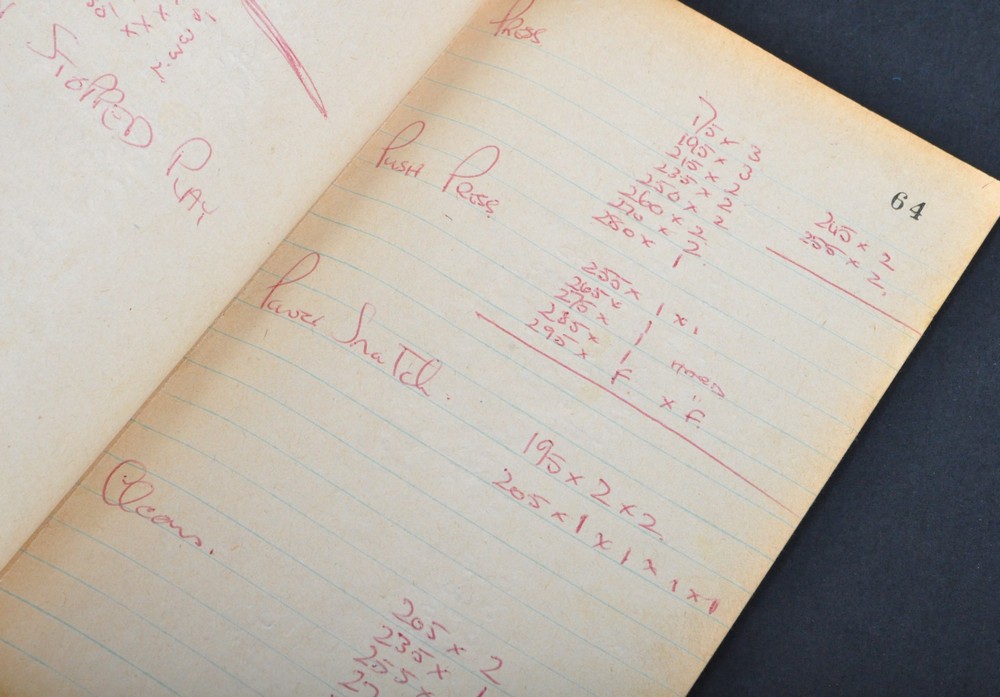 STOPPED PLAY
64
Press
175 x 3
195 x 3
215 x 2
235 x 2
250 x 2
260 x 2
270 x 2
280 x 1
245 x 2
255 x 2.
Push Press
255 x 1 x 1
265 x 1
275 x 1
285 x 1
295 x F
x F.
Power Snatch.
195 x 2 x 2
205 x 1 x 1 x 1 x 1
Cleans.
205 x 2
235 x
255 x